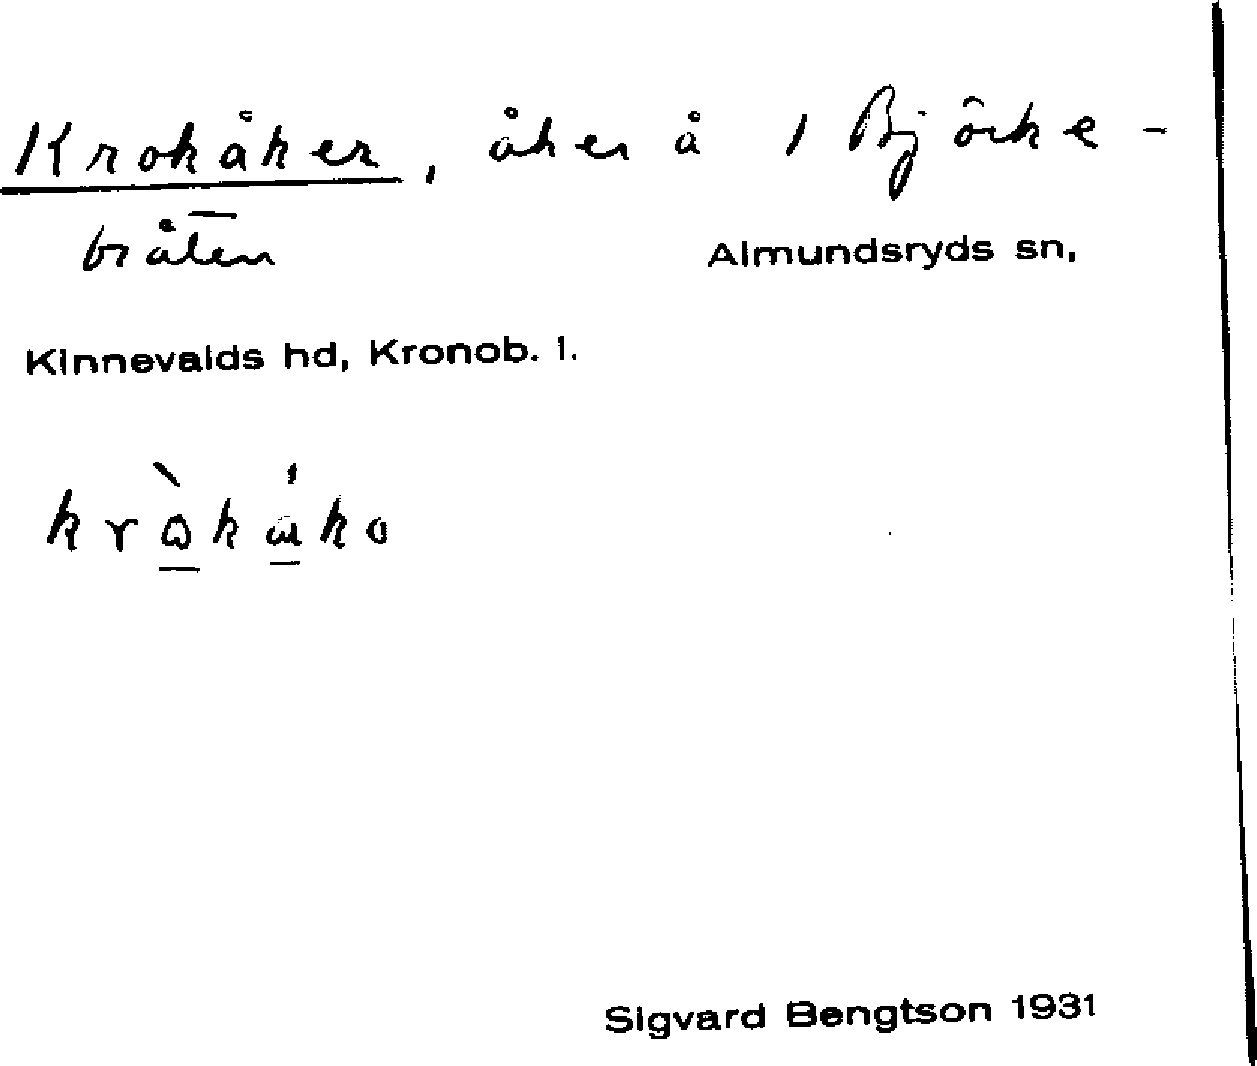 Krokåker, åker å 1 Björke-
bråten
Almundsryds sn,
Kinnevalds hd, Kronob. l.
Sigvard Bengtson 1931